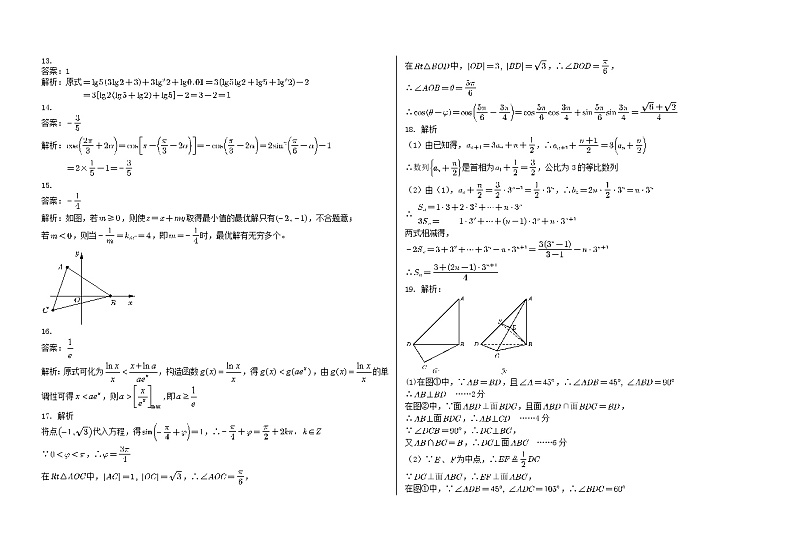 13.
答案：1
解析：原式=lg5(3lg2+3)+3lg²2+lg0.01=3(lg5lg2+lg5+lg²2)-2
=3[lg2(lg5+lg2)+lg5]-2=3-2=1
14.
答案：-3/5
解析：cos(2π/3+2α)=cos[π-(π/3-2α)]=-cos(π/3-2α)=2sin²(π/6-α)-1
=2×1/5-1=-3/5
15.
答案：-1/4
解析：如图，若m≥0，则使z=x+my取得最小值的最优解只有(-2,-1)，不合题意；
若m<0，则当-1/m=k_AC=4，即m=-1/4时，最优解有无穷多个。
y
A
O B x
C
16.
答案：1/e
解析：原式可化为 ln x/x < (x+ln a)/(aeˣ)，构造函数g(x)=ln x/x，得g(x)<g(aeˣ)，由g(x)=ln x/x的单
调性可得x<aeˣ，则a>[x/eˣ]max，即a≥1/e
17. 解析
将点(-1,√3)代入方程，得sin(-π/4+φ)=1，∴-π/4+φ=π/2+2kπ，k∈Z
∵0<φ<π，∴φ=3π/4
在Rt△AOC中，|AC|=1，|OC|=√3，∴∠AOC=π/6，
在Rt△BOD中，|OD|=3，|BD|=√3，∴∠BOD=π/6，
∴∠AOB=θ=5π/6
∴cos(θ-φ)=cos(5π/6-3π/4)=cos5π/6cos3π/4+sin5π/6sin3π/4=(√6+√2)/4
18. 解析
（1）由已知得，aₙ₊₁=3aₙ+n+1/2，∴aₙ₊₁+(n+1)/2=3(aₙ+n/2)
∴数列{aₙ+n/2}是首相为a₁+1/2=3/2，公比为3的等比数列
（2）由（1），aₙ+n/2=3/2·3ⁿ⁻¹=1/2·3ⁿ，∴bₙ=2n·1/2·3ⁿ=n·3ⁿ
∴ Sₙ=1·3+2·3²+…+n·3ⁿ
3Sₙ= 1·3²+…+(n-1)·3ⁿ+n·3ⁿ⁺¹
两式相减得，
-2Sₙ=3+3²+…+3ⁿ-n·3ⁿ⁺¹=3(3ⁿ-1)/(3-1)-n·3ⁿ⁺¹
∴Sₙ=(3+(2n-1)·3ⁿ⁺¹)/4
19. 解析：
A A
F E
D B D B
C C
(1)在图①中，∵AB=BD，且∠A=45°，∴∠ADB=45°，∠ABD=90°
∴AB⊥BD ……2分
在图②中，∵面ABD⊥面BDC，且面ABD∩面BDC=BD，
∴AB⊥面BDC，∴AB⊥CD ……4分
∵∠DCB=90°，∴DC⊥BC，
又AB∩BC=B，∴DC⊥面ABC ……6分
（2）∵E、F为中点，∴EF≜1/2DC
∵DC⊥面ABC，∴EF⊥面ABC，
在图①中，∵∠ADB=45°，∠ADC=105°，∴∠BDC=60°